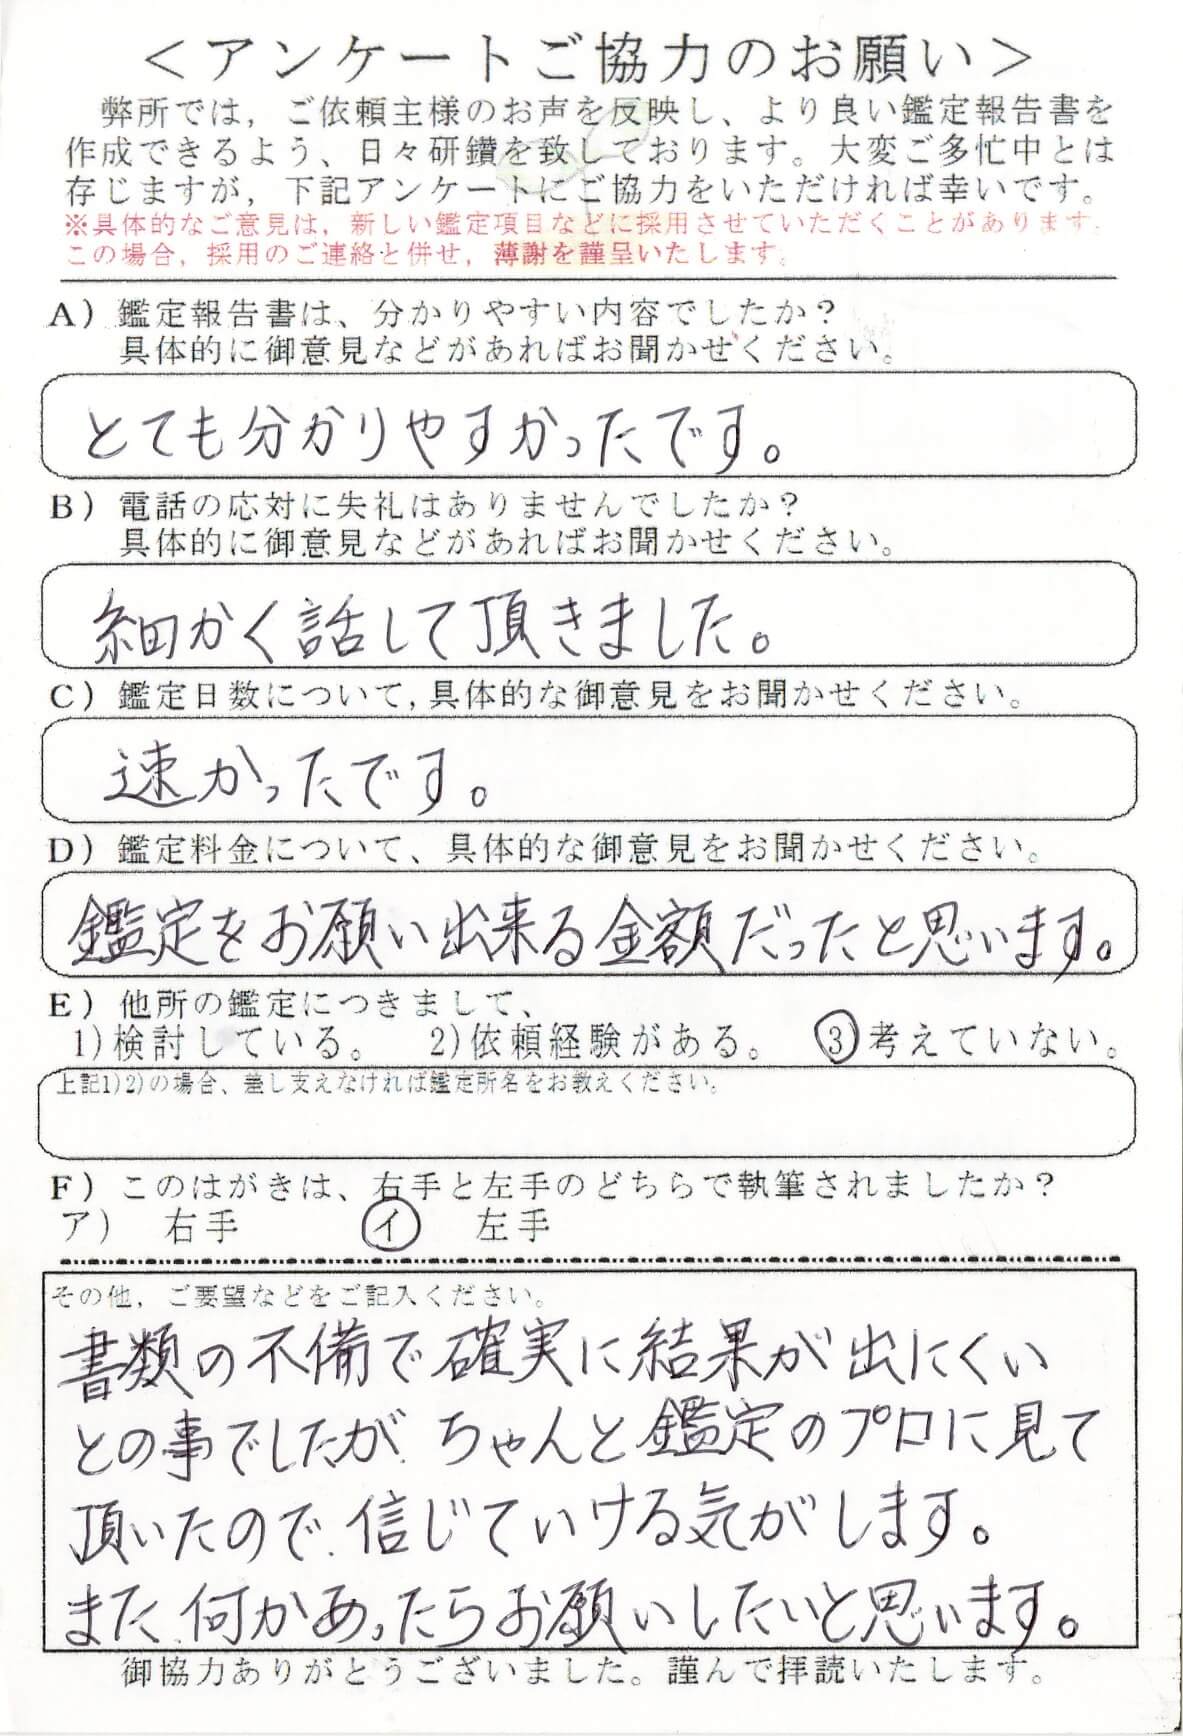 ＜アンケートご協力のお願い＞
弊所では，ご依頼主様のお声を反映し、より良い鑑定報告書を
作成できるよう、日々研鑽を致しております。大変ご多忙中とは
存じますが，下記アンケートにご協力をいただければ幸いです。
※具体的なご意見は，新しい鑑定項目などに採用させていただくことがあります．
この場合，採用のご連絡と併せ，薄謝を謹呈いたします。
A）鑑定報告書は、分かりやすい内容でしたか？
具体的に御意見などがあればお聞かせください。
とても分かりやすかったです。
B）電話の応対に失礼はありませんでしたか？
具体的に御意見などがあればお聞かせください。
細かく話して頂きました。
C）鑑定日数について，具体的な御意見をお聞かせください。
速かったです。
D）鑑定料金について、具体的な御意見をお聞かせください。
鑑定をお願い出来る金額だったと思います。
E）他所の鑑定につきまして、
1)検討している。 2)依頼経験がある。 ③考えていない。
上記1)2)の場合、差し支えなければ鑑定所名をお教えください。
F）このはがきは、右手と左手のどちらで執筆されましたか？
ア） 右手 イ 左手
その他，ご要望などをご記入ください。
書類の不備で確実に結果が出にくい
との事でしたが、ちゃんと鑑定のプロに見て
頂いたので、信じていける気がします。
また、何かあったらお願いしたいと思います。
御協力ありがとうございました。謹んで拝読いたします。